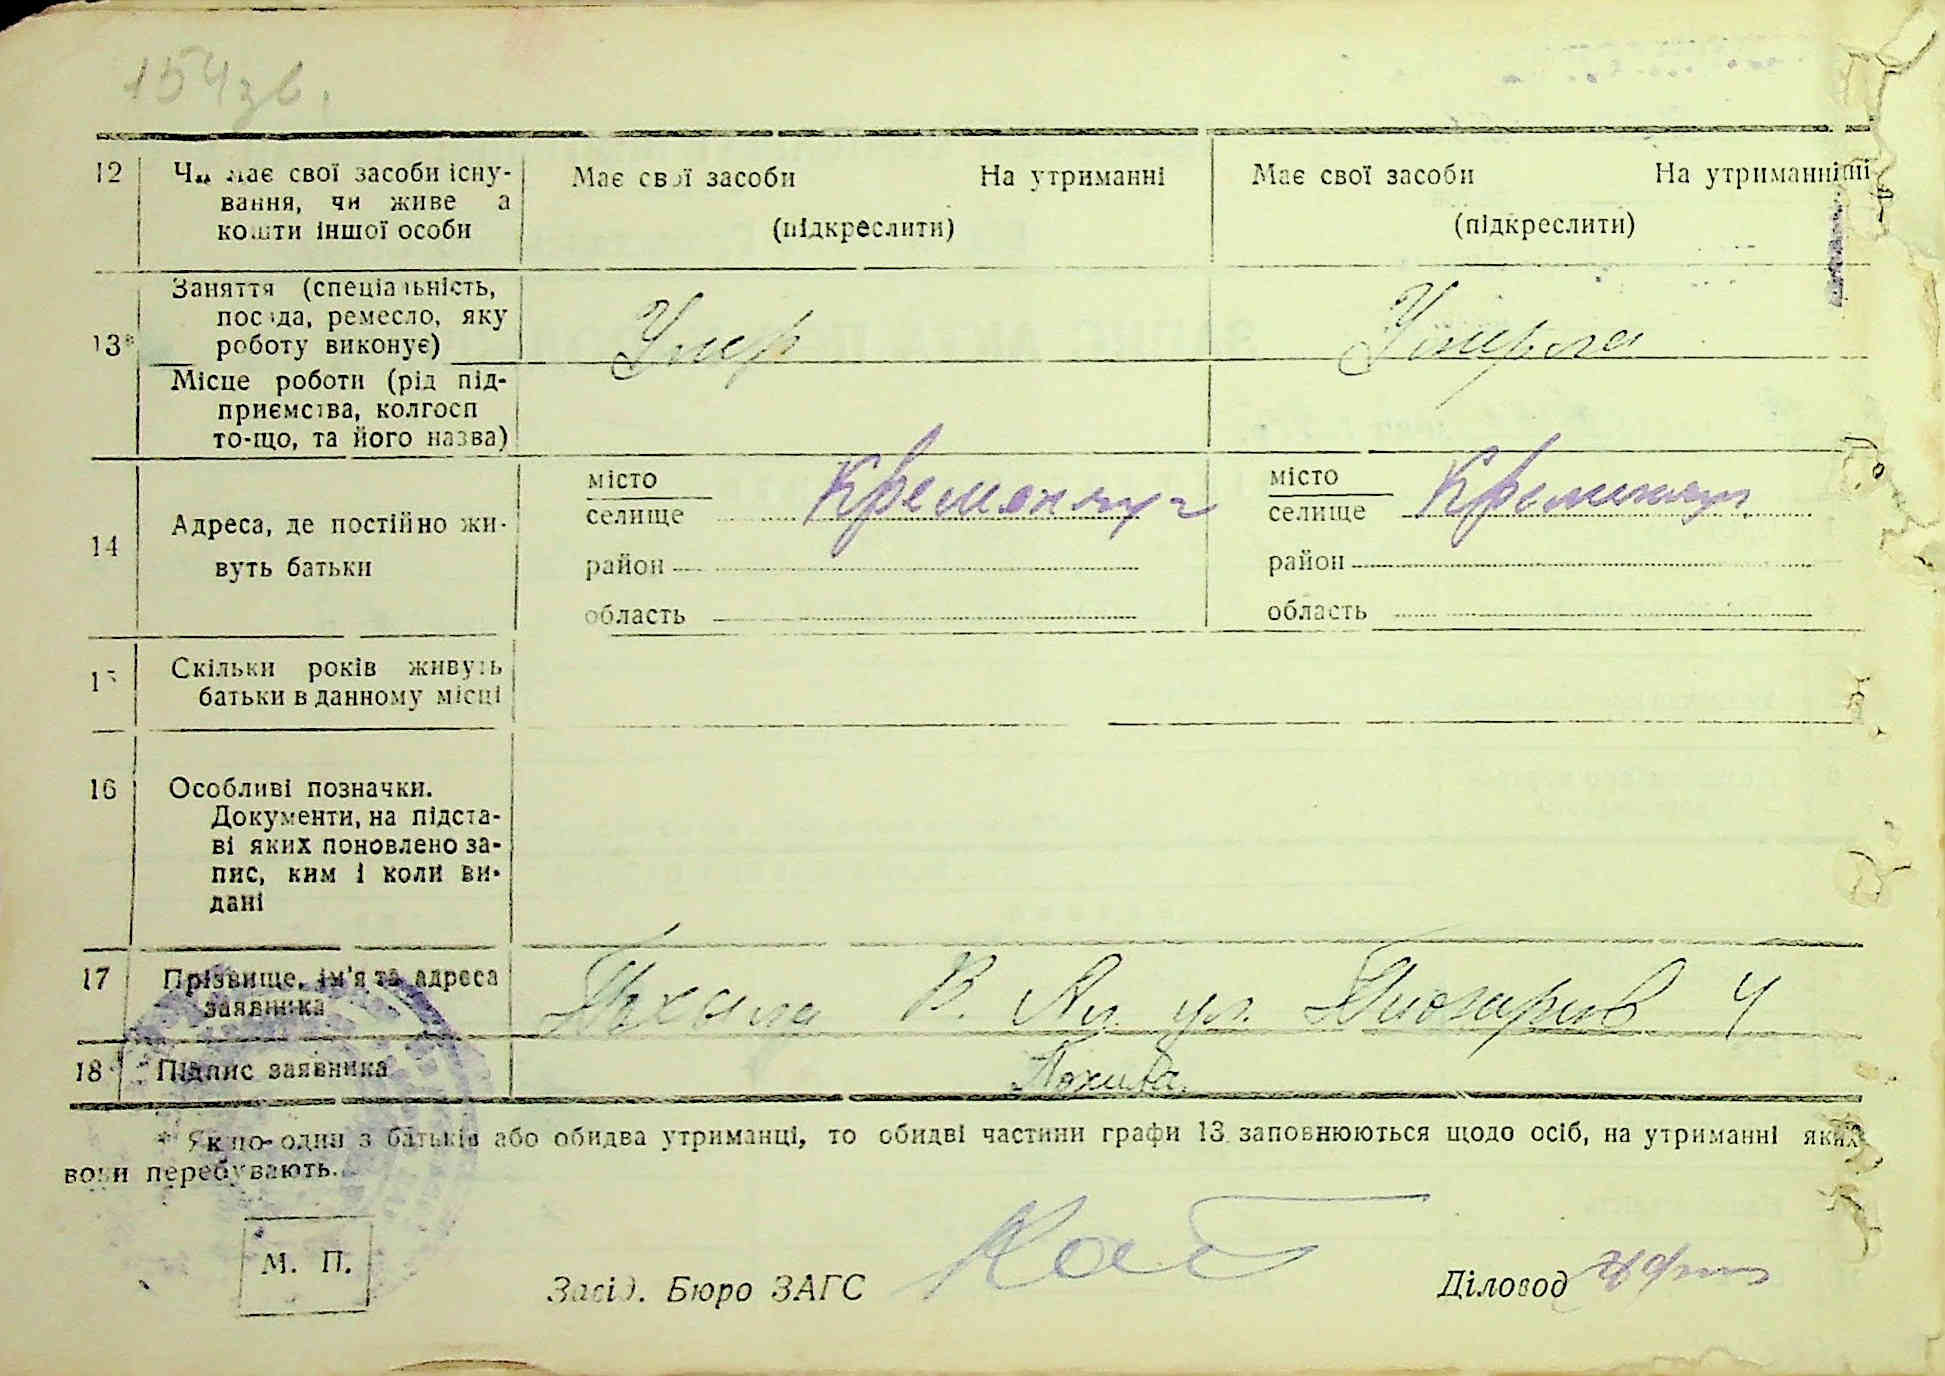 154 зв.
12 Чи має свої засоби існу- Має свої засоби На утриманні Має свої засоби На утриманні
вання, чи живе а
кошти іншої особи (підкреслити) (підкреслити)
13* Заняття (спеціальність,
посада, ремесло, яку
роботу виконує) Умер Умерла
Місце роботи (рід під-
приємства, колгосп
то-що, та його назва)
14 Адреса, де постійно жи-
вуть батьки
місто
селище Кременчуг
район
область
місто
селище Кременчуг
район
область
15 Скільки років живуть
батьки в данному місці
16 Особливі позначки.
Документи, на підста-
ві яких поновлено за-
пис, ким і коли ви-
дані
17 Прізвище, ім'я та адреса
заявника В. ул. 4
18 Підпис заявника
* Якщо один з батьків або обидва утриманці, то обидві частини графи 13 заповнюються щодо осіб, на утриманні яких
вони перебувають.
М. П.
Засід. Бюро ЗАГС Діловод